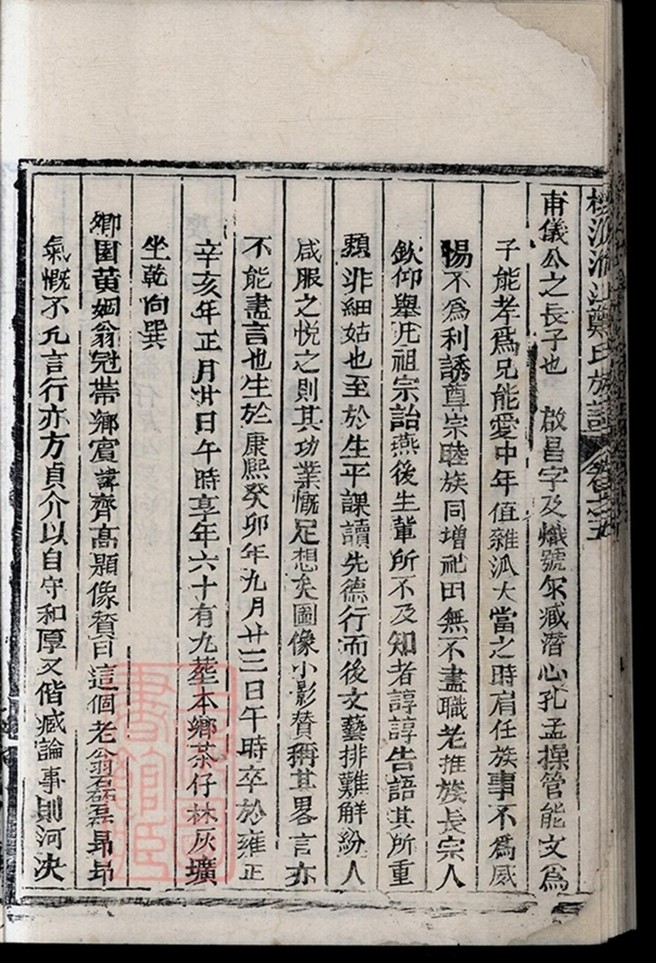 鄭氏族譜 卷之五
甫儀公之長子也 啟昌字及熾號尔臧潛心孔孟操管能文為
子能孝爲兄能愛中年值雜泒大當之時肩任族事不爲威
惕不爲利誘尊宗睦族同增祀田無不盡職老推族長宗人
欽仰舉凡祖宗詒燕後生軰所不及知者諄諄告語其所重
類非細姑也至於生平課讀先德行而後文藝排難解紛人
咸服之悅之則其功業慨足想矣圖像小影贊稱其畧言亦
不能盡言也生於康熙癸卯年九月廿三日午時卒於雍正
辛亥年正月廿日午時享年六十有九塟本鄉茶仔林灰壙
坐乾向巽
鄉國黄姻翁冠帯鄉賔諱齊髙顯像賛曰這個老翁磊磊昂昂
氣慨不允言行亦方貞介以自守和厚又偕臧論事則河決